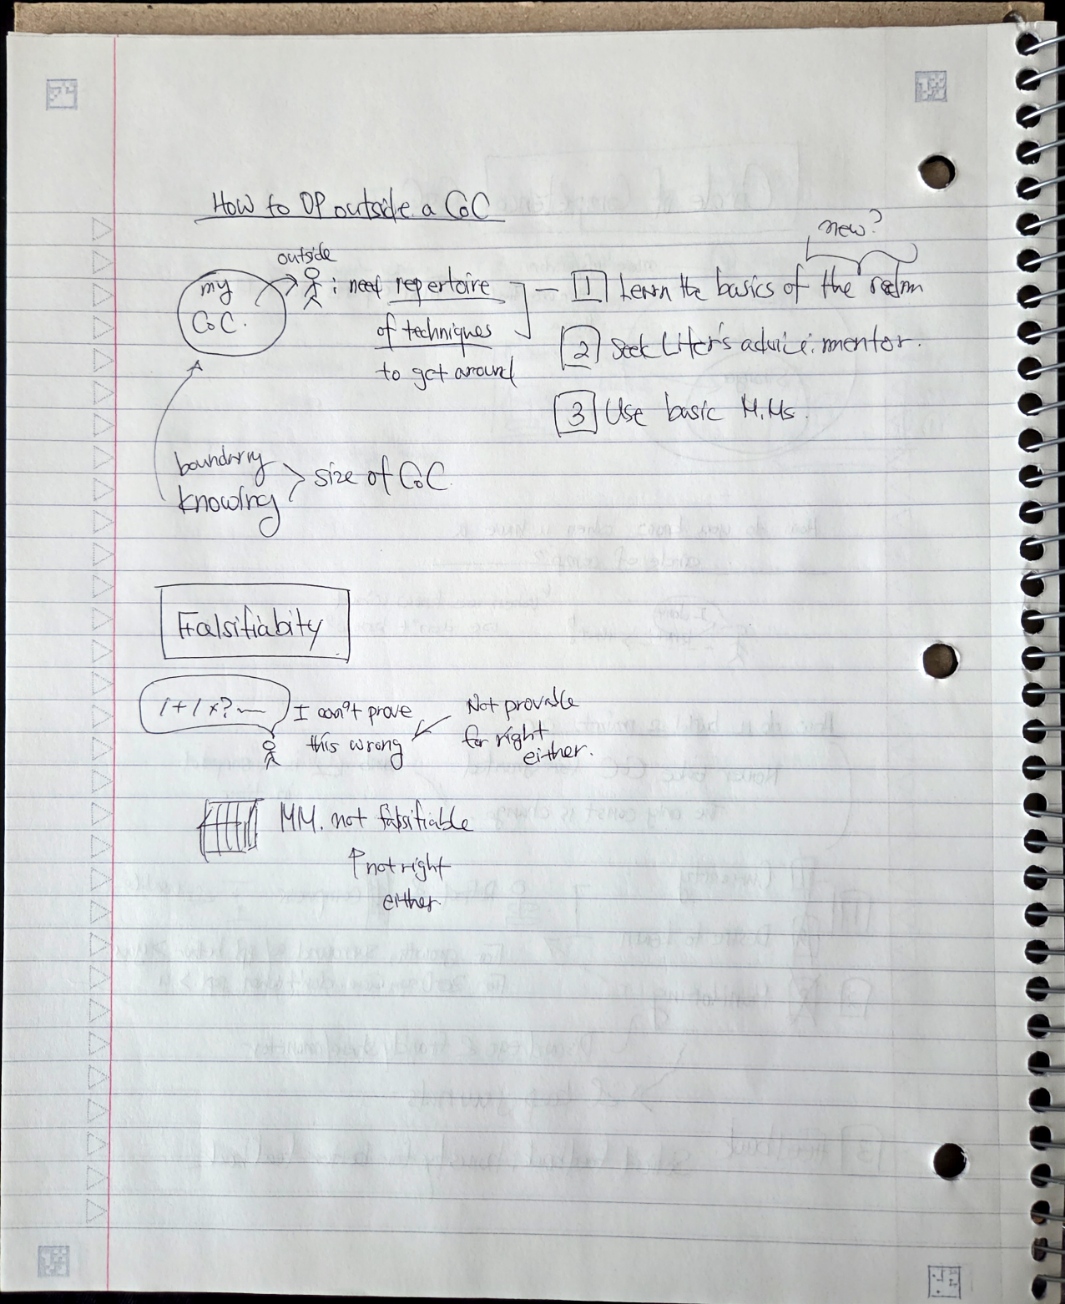 How to OP outside a CoC
new?
outside
my CoC.
: need repertoire
of techniques
to get around
1 Learn the basics of the realm
2 Seek advice: mentor.
3 Use basic M.Ms.
boundary
knowing
size of CoC.
Falsifiabity
1+1x?
I can't prove
this wrong
Not provable
for right
either.
MM. not falsifiable
not right
either